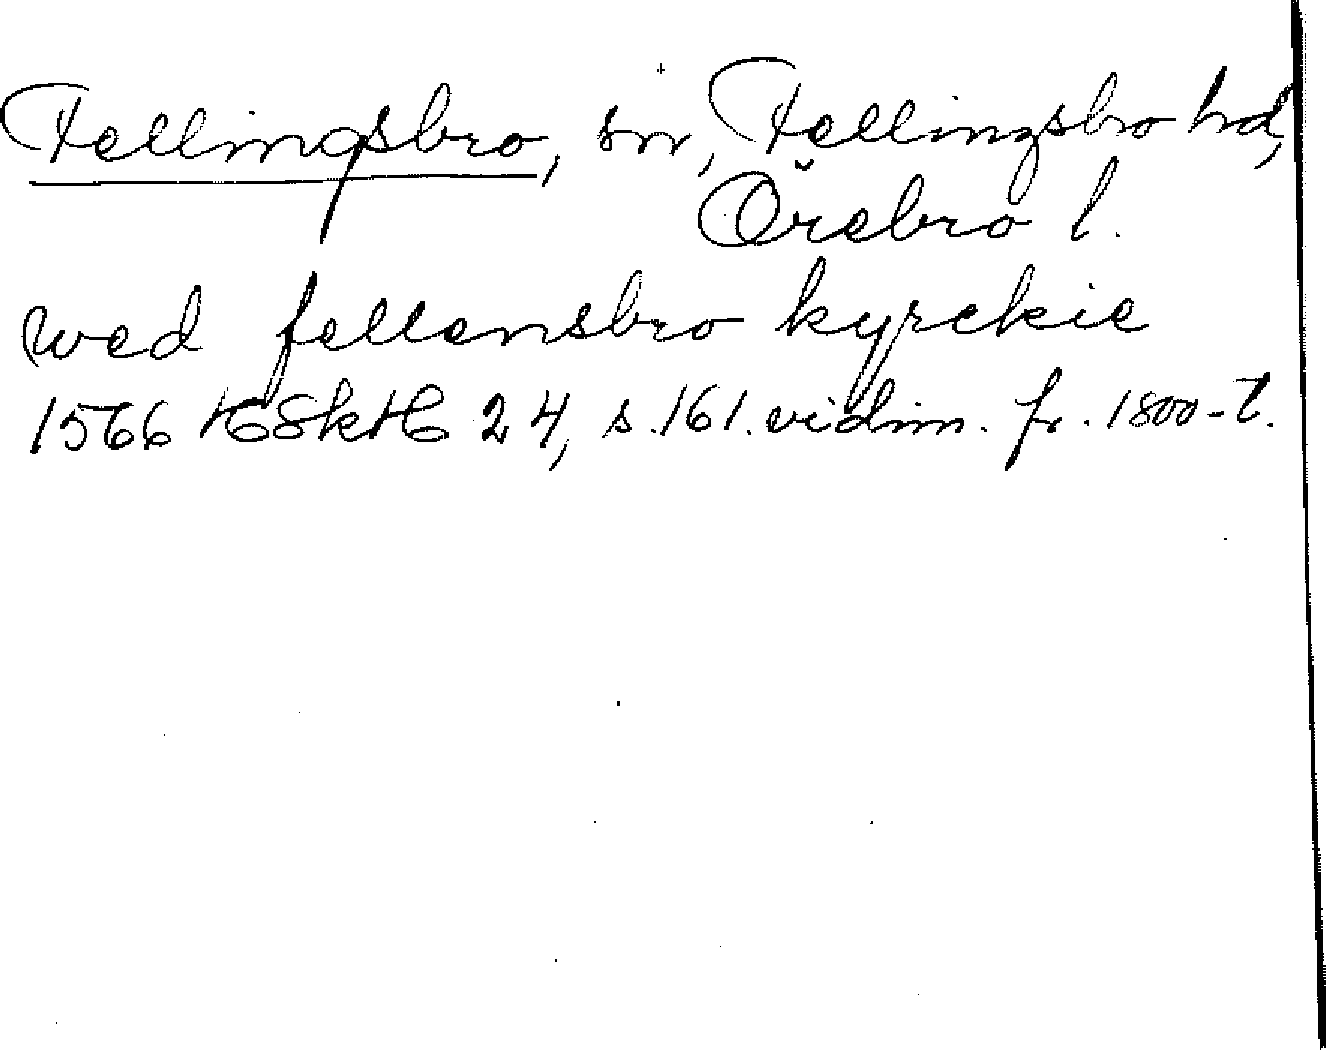 Fellingsbro, sn, Fellingsbro hd,
Örebro l.
wed fellensbro kyrckie
1566 HSkH 24, s. 161. vidim. fr. 1800-t.